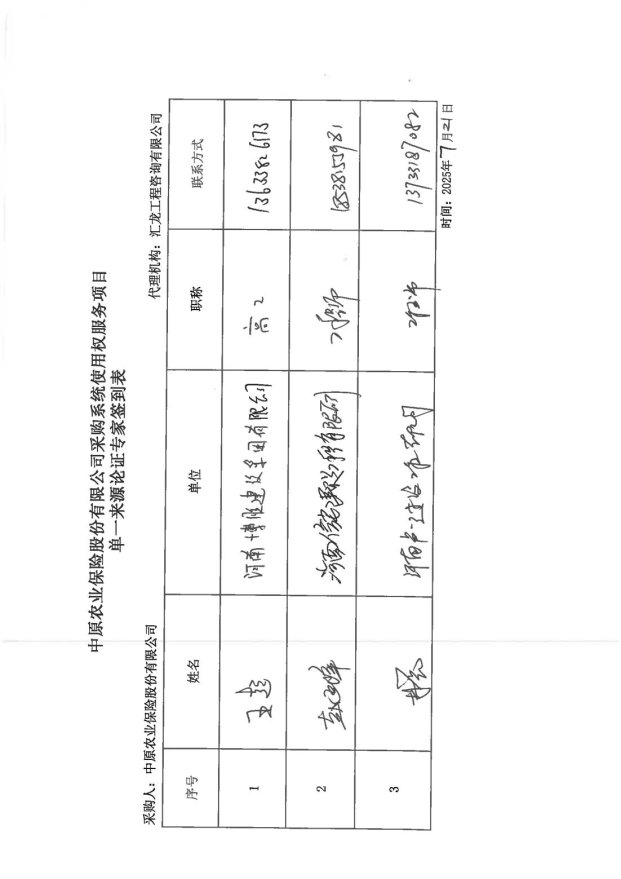 中原农业保险股份有限公司采购系统使用权服务项目
单一来源论证专家签到表
采购人：中原农业保险股份有限公司 代理机构：汇龙工程咨询有限公司
序号 姓名 单位 职称 联系方式
1 王超 河南博胜建设集团有限公司 高工 13633826173
2 工程师 18538153981
3 工程师 13733187082
时间：2025年7月21日